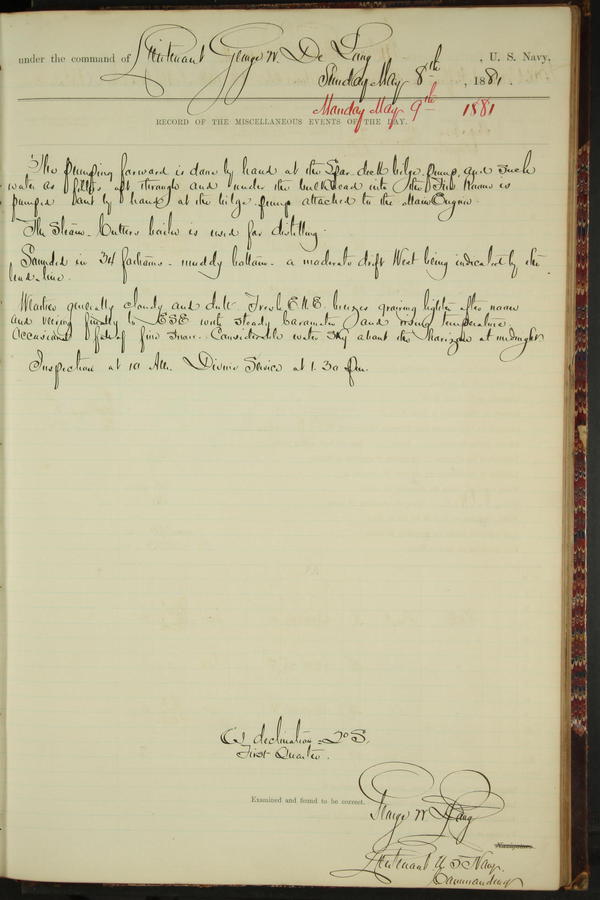 under the command of Lieutenant George W. De Long, U. S. Navy,
Sunday May 8th, 1881.
Monday May 9th 1881
RECORD OF THE MISCELLANEOUS EVENTS OF THE DAY.
The pumping forward is done by hand at the Spar deck bilge pump, and such
water as filters aft through and under the bulkhead into the Fire Room is
pumped out by hand at the bilge pump attached to the Main Engine.
The Steam-Cutters boiler is used for distilling.
Sounded in 34 fathoms - muddy bottom - a moderate drift West being indicated by the
lead-line.
Weather generally cloudy and dull. Fresh E.N.E. breezes growing lighter after noon
and veering finally to ESE with steady barometer and rising temperature
Occasional fall of fine snow. Considerable water sky about the Horizon at midnight
Inspection at 10 A.M. Divine Service at 1.30 P.m.
declination = 20 S.
First Quarter.
Examined and found to be correct.
George W. De Long
Navigator.
Lieutenant U.S. Navy,
Commanding